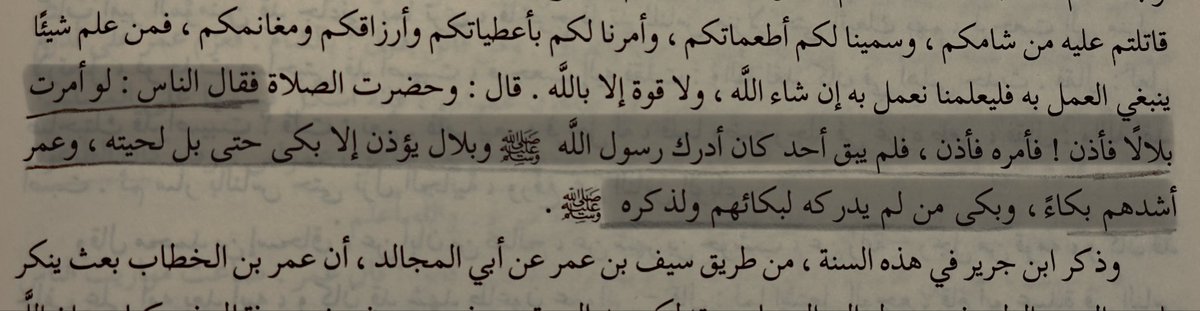 قاتلتم عليه من شامكم ، وسمينا لكم أطعماتكم ، وأمرنا لكم بأعطياتكم وأرزاقكم ومغانمكم ، فمن علم شيئًا
ينبغي العمل به فليعلمنا نعمل به إن شاء اللَّه ، ولا قوة إلا باللَّه . قال : وحضرت الصلاة فقال الناس : لو أمرت
بلالًا فأذن ! فأمره فأذن ، فلم يبق أحد كان أدرك رسول اللَّه ﷺ وبلال يؤذن إلا بكى حتى بل لحيته ، وعمر
أشدهم بكاءً ، وبكى من لم يدركه لبكائهم ولذكره ﷺ .
وذكر ابن جرير في هذه السنة ، من طريق سيف بن عمر عن أبي المجالد ، أن عمر بن الخطاب بعث ينكر